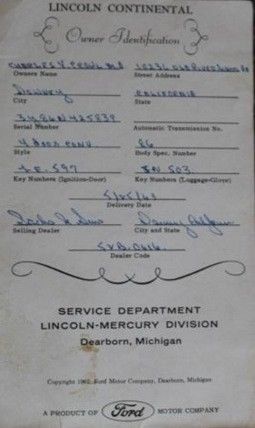 LINCOLN CONTINENTAL
Owner Identification
CHARLES V. M.D.
Owners Name Street Address
DOWNEY CALIFORNIA
City State
3Y86N425839
Serial Number Automatic Transmission No.
4 DOOR CONV 86
Style Body Spec. Number
1E 597 503
Key Numbers (Ignition-Door) Key Numbers (Luggage-Glove)
5/25/63
Delivery Date
Selling Dealer City and State
Dealer Code
SERVICE DEPARTMENT
LINCOLN-MERCURY DIVISION
Dearborn, Michigan
Copyright 1962, Ford Motor Company, Dearborn, Michigan
A PRODUCT OF Ford MOTOR COMPANY